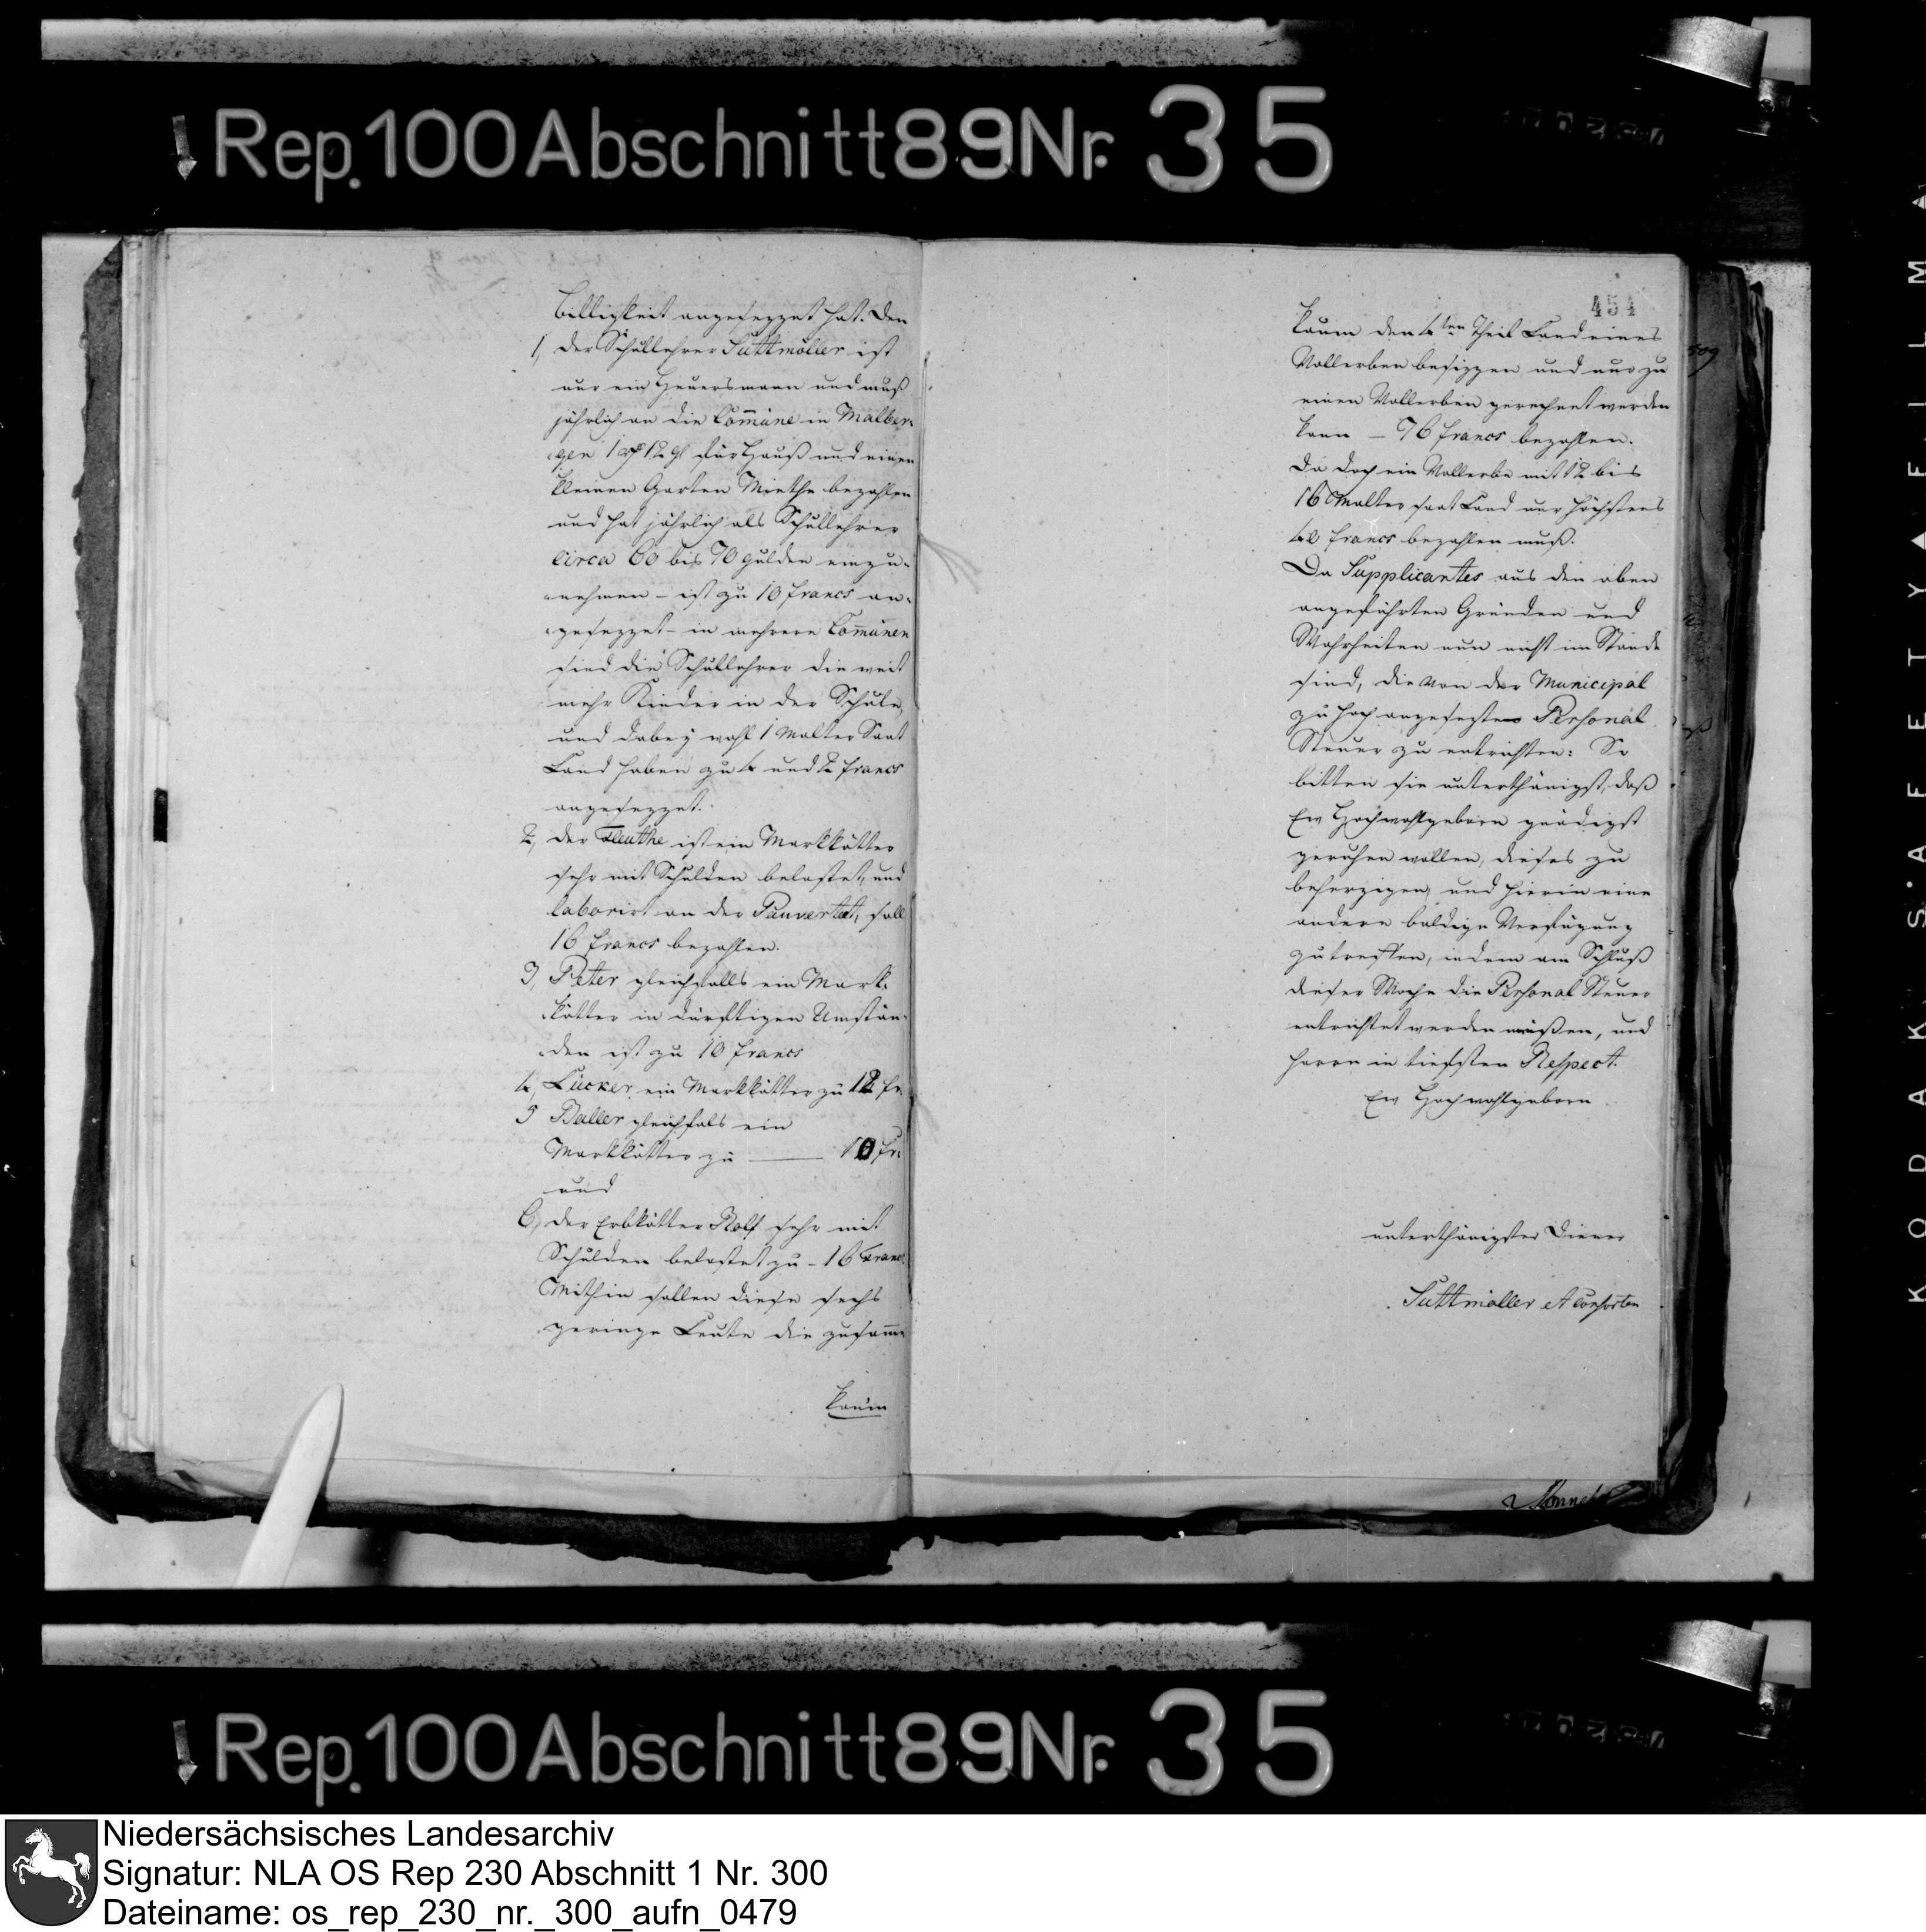 Rep. 100 Abschnitt 89 Nr. 35
Billigkeit angesezzet hat. Den
1, der Schullehrer Suttmöller ist
nur ein Heuersmann und muß
jährlich an die Com̄une in Malber-
gen 1 rt 12 gl für Hauß und einen
kleinen Garten Miethe bezahlen
und hat jährlich als Schullehrer
circa 60 bis 70 Gulden einzu-
nehmen – ist zu 10 francs an-
gesezzet – in mehrere Com̄unen
sind die Schullehrer die weit
mehr Kinder in der Schule,
und dabey wohl 1 Malter Saat
Land haben zu 4 und 2 francs
angesezzet.
2, der Fleuthe ist ein Markkötter
sehr mit Schulden belastet, und
laborirt an der Pauvertæt, soll
16 francs bezahlen.
3, Peter gleichfalls ein Mark-
kötter in dürftigen Umstän-
den ist zu 10 francs
4, Lücker ein Markkötter zu 12 fr.
5 Baller gleichfals ein
Markkötter zu — 10 fr.
und
6, der Erbkötter Rolf sehr mit
Schulden belastet zu – 16 Franc.
Mithin sollen diese sechs
geringe Leute die zusam̄
kaum
454
kaum den 4ten Theil Land eines
Vollerben besizzen und nur zu
einen Vollerben gerechnet werden
kann – 76 francs bezahlen.
Da doch ein Vollerbe mit 12 bis
16 Malter saat Land nur höchstens
42 francs bezahlen muß.
Da Supplicantes aus den oben
angeführten Gründen und
Wahrheiten nun nicht im Stande
sind, die von der Municipal
zu hoch angesezten Personal
Steuer zu entrichten: So
bitten sie unterthänigst, daß
Ew Hochwohlgeborn gnädigst
geruhen wollen, dieses zu
beherzigen, und hierin eine
andere baldige Verfügung
zu treffen, indem am Schluß
dieser Woche die Personal Steuer
entrichtet werden müßen, und
harren in tiefsten Respect.
Ew Hochwohlgeborn
unterthänigster Diener
Suttmöller et Consorten
509
KODAK SAFETY FILM
Rep. 100 Abschnitt 89 Nr. 35
Niedersächsisches Landesarchiv
Signatur: NLA OS Rep 230 Abschnitt 1 Nr. 300
Dateiname: os_rep_230_nr._300_aufn_0479